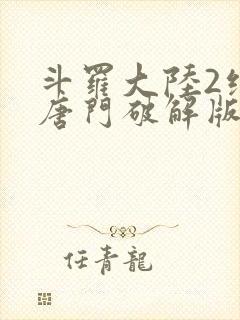 斗羅大陸2
唐門破解版
任青龍